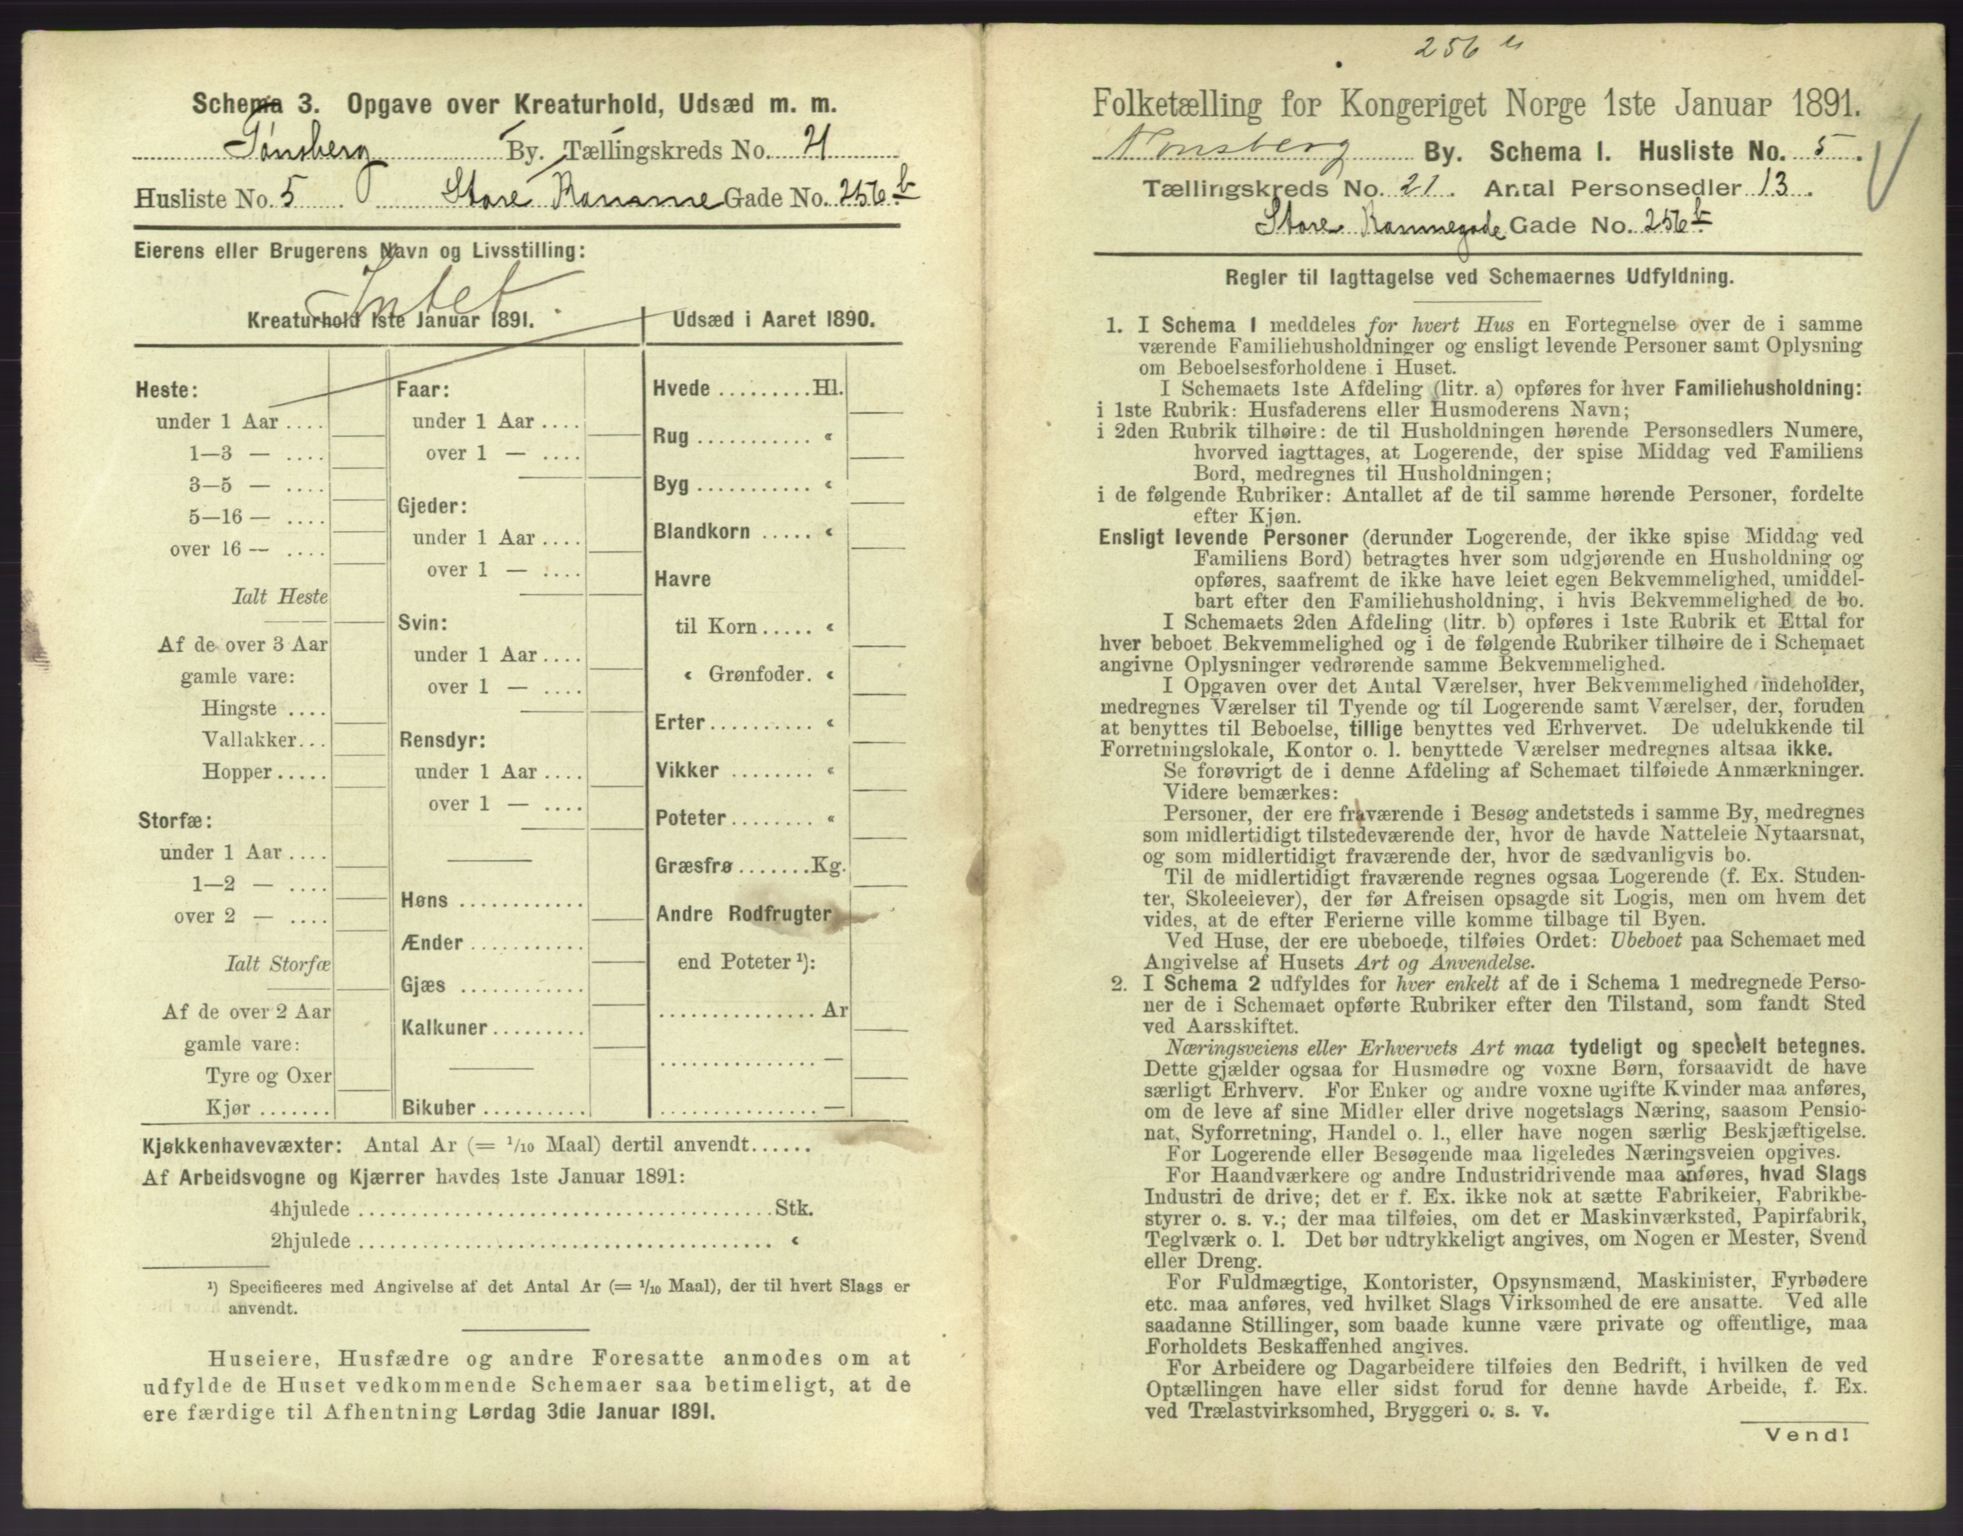 Schema 3. Opgave over Kreaturhold, Udsæd m. m.
Tønsberg By. Tællingskreds No. 21
Husliste No. 5 Store Ramme Gade No. 256 b
Eierens eller Brugerens Navn og Livsstilling:
Intet
Kreaturhold 1ste Januar 1891.
Heste:
under 1 Aar ....
1—3 — ....
3—5 — ....
5—16 — ....
over 16 — ....
Ialt Heste
Af de over 3 Aar
gamle vare:
Hingste ....
Vallakker...
Hopper.....
Storfæ:
under 1 Aar....
1—2 — ....
over 2 — ....
Ialt Storfæ
Af de over 2 Aar
gamle vare:
Tyre og Oxer
Kjør.......
Faar:
under 1 Aar ....
over 1 — ....
Gjeder:
under 1 Aar ....
over 1 — ....
Svin:
under 1 Aar ....
over 1 — ....
Rensdyr:
under 1 Aar ....
over 1 — ....
Høns ...........
Ænder ..........
Gjæs ...........
Kalkuner.........
Bikuber..........
Udsæd i Aaret 1890.
Hvede .........Hl.
Rug ........... «
Byg ........... «
Blandkorn ..... «
Havre
til Korn..... «
« Grønfoder. «
Erter.......... «
Vikker ........ «
Poteter........ «
Græsfrø.......Kg.
Andre Rodfrugter
end Poteter ¹):
............... Ar
............... —
............... —
Kjøkkenhavevæxter: Antal Ar (= 1/10 Maal) dertil anvendt......
Af Arbeidsvogne og Kjærrer havdes 1ste Januar 1891:
4hjulede .....................................Stk.
2hjulede ..................................... «
¹) Specificeres med Angivelse af det Antal Ar (= 1/10 Maal), der til hvert Slags er
anvendt.
Huseiere, Husfædre og andre Foresatte anmodes om at
udfylde de Huset vedkommende Schemaer saa betimeligt, at de
ere færdige til Afhentning Lørdag 3die Januar 1891.
256
Folketælling for Kongeriget Norge 1ste Januar 1891.
Tønsberg By. Schema I. Husliste No. 5.
Tællingskreds No. 21. Antal Personsedler 13.
Store Rammegade Gade No. 256 b
Regler til Iagttagelse ved Schemaernes Udfyldning.
1. I Schema I meddeles for hvert Hus en Fortegnelse over de i samme
værende Familiehusholdninger og ensligt levende Personer samt Oplysning
om Beboelsesforholdene i Huset.
I Schemaets 1ste Afdeling (litr. a) opføres for hver Familiehusholdning:
i 1ste Rubrik: Husfaderens eller Husmoderens Navn;
i 2den Rubrik tilhøire: de til Husholdningen hørende Personsedlers Numere,
hvorved iagttages, at Logerende, der spise Middag ved Familiens
Bord, medregnes til Husholdningen;
i de følgende Rubriker: Antallet af de til samme hørende Personer, fordelte
efter Kjøn.
Ensligt levende Personer (derunder Logerende, der ikke spise Middag ved
Familiens Bord) betragtes hver som udgjørende en Husholdning og
opføres, saafremt de ikke have leiet egen Bekvemmelighed, umiddel-
bart efter den Familiehusholdning, i hvis Bekvemmelighed de bo.
I Schemaets 2den Afdeling (litr. b) opføres i 1ste Rubrik et Ettal for
hver beboet Bekvemmelighed og i de følgende Rubriker tilhøire de i Schemaet
angivne Oplysninger vedrørende samme Bekvemmelighed.
I Opgaven over det Antal Værelser, hver Bekvemmelighed indeholder,
medregnes Værelser til Tyende og til Logerende samt Værelser, der, foruden
at benyttes til Beboelse, tillige benyttes ved Erhvervet. De udelukkende til
Forretningslokale, Kontor o. l. benyttede Værelser medregnes altsaa ikke.
Se forøvrigt de i denne Afdeling af Schemaet tilføiede Anmærkninger.
Videre bemærkes:
Personer, der ere fraværende i Besøg andetsteds i samme By, medregnes
som midlertidigt tilstedeværende der, hvor de havde Natteleie Nytaarsnat,
og som midlertidigt fraværende der, hvor de sædvanligvis bo.
Til de midlertidigt fraværende regnes ogsaa Logerende (f. Ex. Studen-
ter, Skoleelever), der før Afreisen opsagde sit Logis, men om hvem det
vides, at de efter Ferierne ville komme tilbage til Byen.
Ved Huse, der ere ubeboede, tilføies Ordet: Ubeboet paa Schemaet med
Angivelse af Husets Art og Anvendelse.
2. I Schema 2 udfyldes for hver enkelt af de i Schema 1 medregnede Perso-
ner de i Schemaet opførte Rubriker efter den Tilstand, som fandt Sted
ved Aarsskiftet.
Næringsveiens eller Erhvervets Art maa tydeligt og specielt betegnes.
Dette gjælder ogsaa for Husmødre og voxne Børn, forsaavidt de have
særligt Erhverv. For Enker og andre voxne ugifte Kvinder maa anføres,
om de leve af sine Midler eller drive nogetslags Næring, saasom Pensio-
nat, Syforretning, Handel o. l., eller have nogen særlig Beskjæftigelse.
For Logerende eller Besøgende maa ligeledes Næringsveien opgives.
For Haandværkere og andre Industridrivende maa anføres, hvad Slags
Industri de drive; det er f. Ex. ikke nok at sætte Fabrikeier, Fabrikbe-
styrer o. s. v.; der maa tilføies, om det er Maskinværksted, Papirfabrik,
Teglværk o. l. Det bør udtrykkeligt angives, om Nogen er Mester, Svend
eller Dreng.
For Fuldmægtige, Kontorister, Opsynsmænd, Maskinister, Fyrbødere
etc. maa anføres, ved hvilket Slags Virksomhed de ere ansatte. Ved alle
saadanne Stillinger, som baade kunne være private og offentlige, maa
Forholdets Beskaffenhed angives.
For Arbeidere og Dagarbeidere tilføies den Bedrift, i hvilken de ved
Optællingen have eller sidst forud for denne havde Arbeide, f. Ex.
ved Trælastvirksomhed, Bryggeri o. s. v.
Vend!